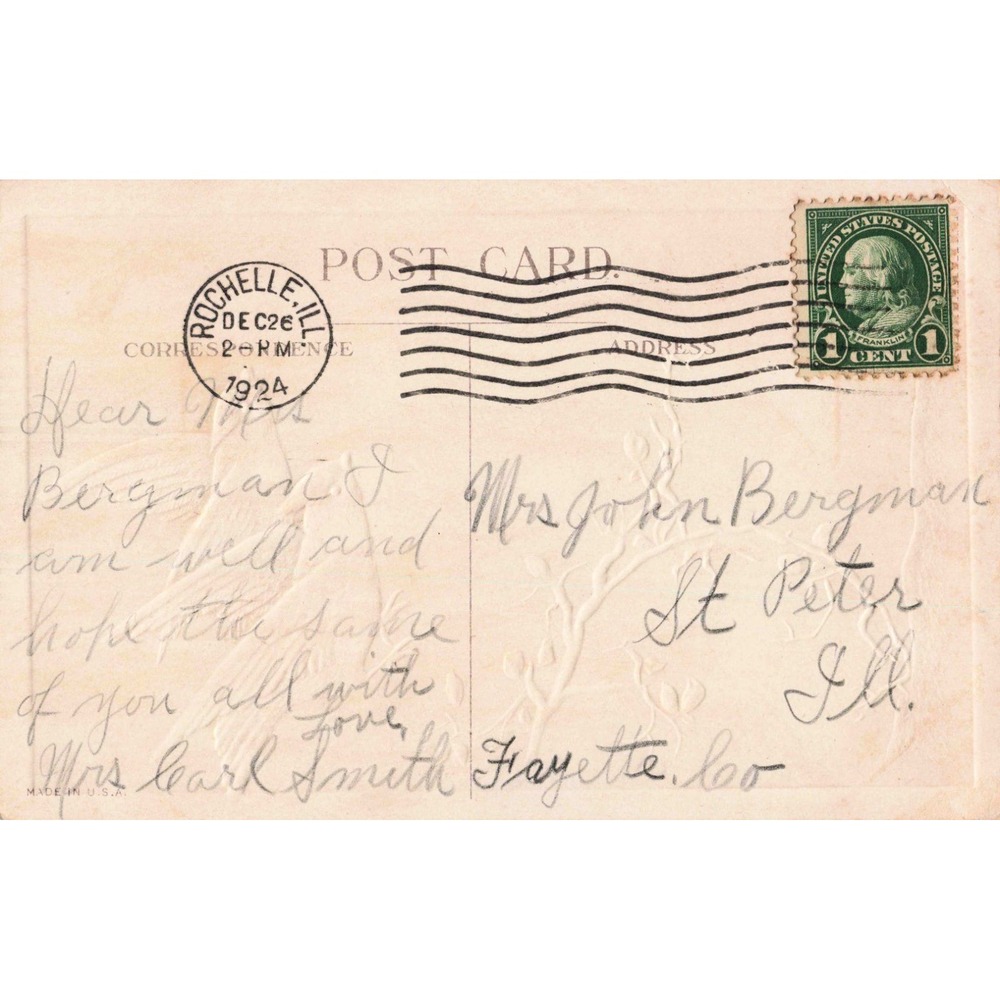 POST CARD.
ROCHELLE, ILL.
DEC 26
2 - PM
1924
UNITED STATES POSTAGE
FRANKLIN
1 CENT 1
CORRESPONDENCE
ADDRESS
Dear Mrs
Bergman. I
am well and
hope the same
of you all with
Love,
Mrs Carl Smith
MADE IN U.S.A.
Mrs John Bergman
St Peter
Ill.
Fayette. Co